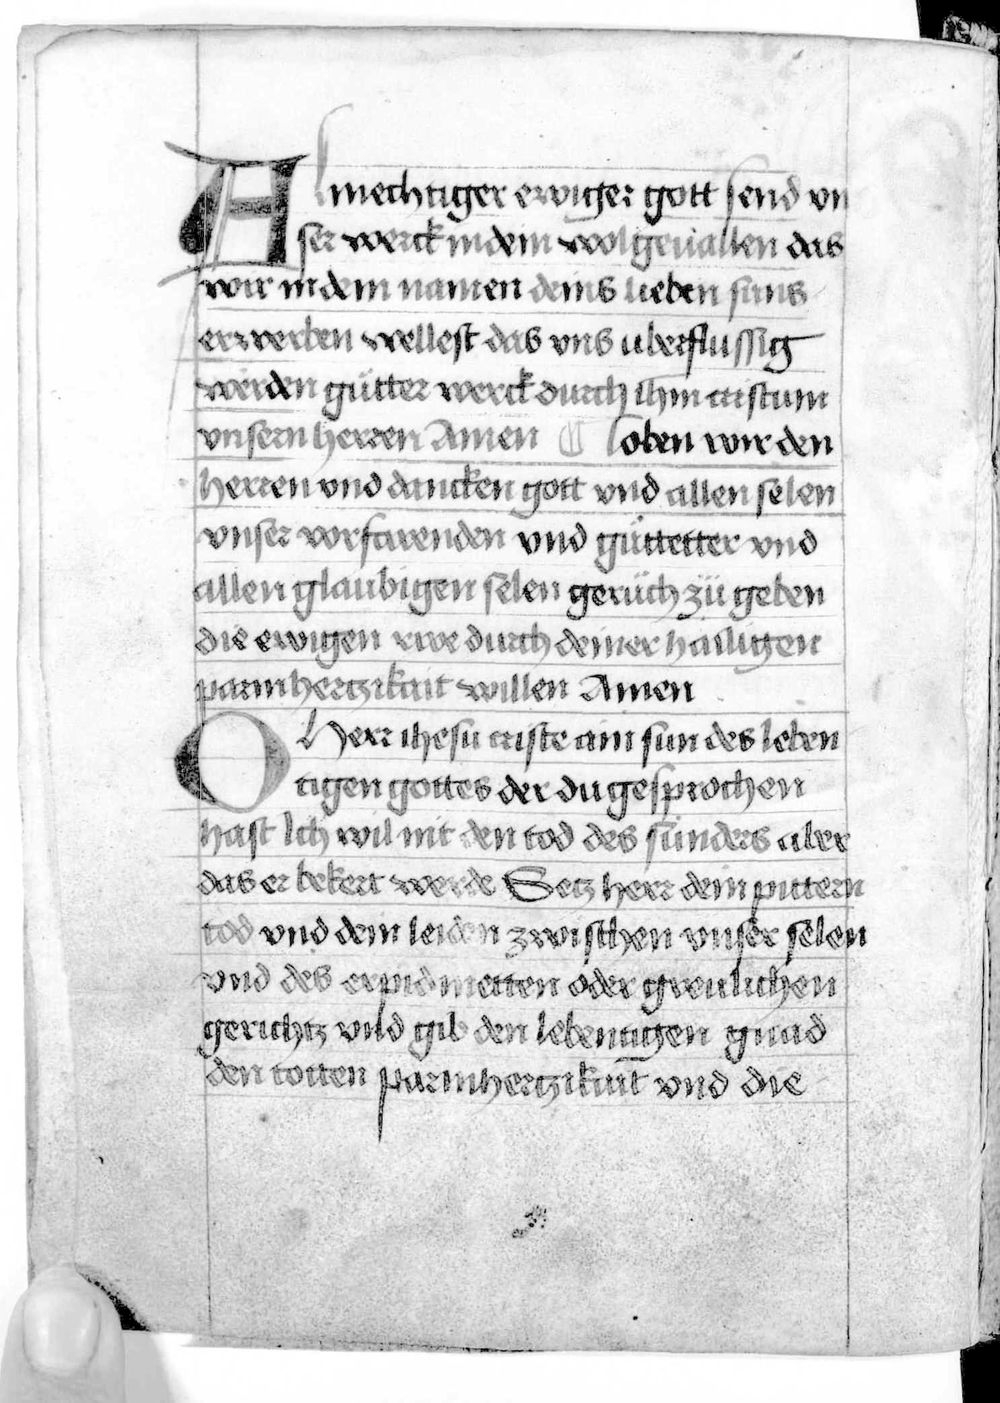 Almechtiger ewiger gott send vn
ser werck in dein wolgeuallen das
wir in dem namen deins lieben suns
erwerben wellest das vns uberflussig
werden gütter werck durch ihm cristum
vnsern herren Amen ¶ loben wir den
herren vnd dancken gott vnd allen selen
vnser vorfarenden vnd güttetter vnd
allen glaubigen selen gerüch zü geben
die ewigen rwe durch deiner hailigen
parmhertzikait willen Amen
O Herr ihesu criste ain sun des leben
tigen gottes der du gesprochen
hast Ich wil nit den tod des sünders aber
das er bekert werde Setz herr dein pittern
tod vnd dein leiden zwischen vnser selen
vnd des erpidmetten oder greulichen
gerichtz vnd gib den lebentigen gnad
den totten parmhertzikait vnd die